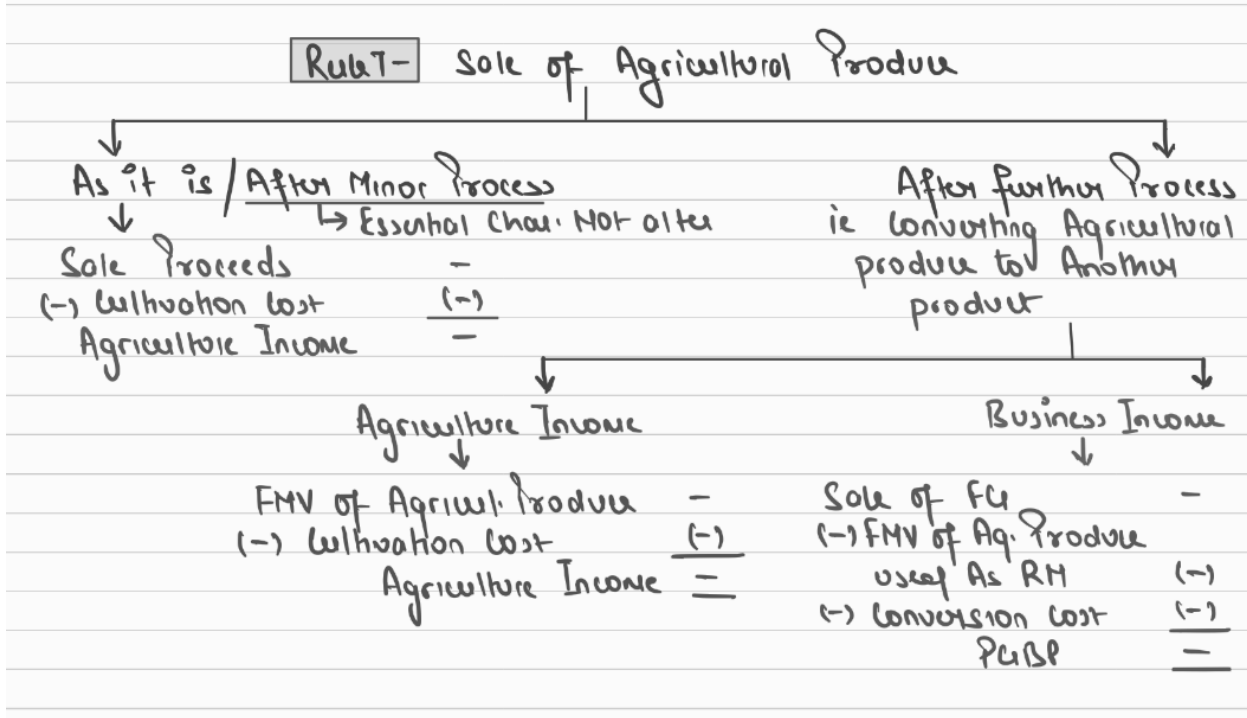 Rule 7- Sale of Agricultural Produce
As it is / After Minor Process
↳ Essential Char. Not alter
Sale Proceeds -
(-) Cultivation Cost (-)
Agriculture Income -
After further Process
ie Converting Agricultural
produce to Another
product
Agriculture Income
FMV of Agricul. Produce -
(-) Cultivation Cost (-)
Agriculture Income =
Business Income
Sale of FG -
(-) FMV of Ag. Produce
used As RM (-)
(-) Conversion Cost (-)
PGBP =